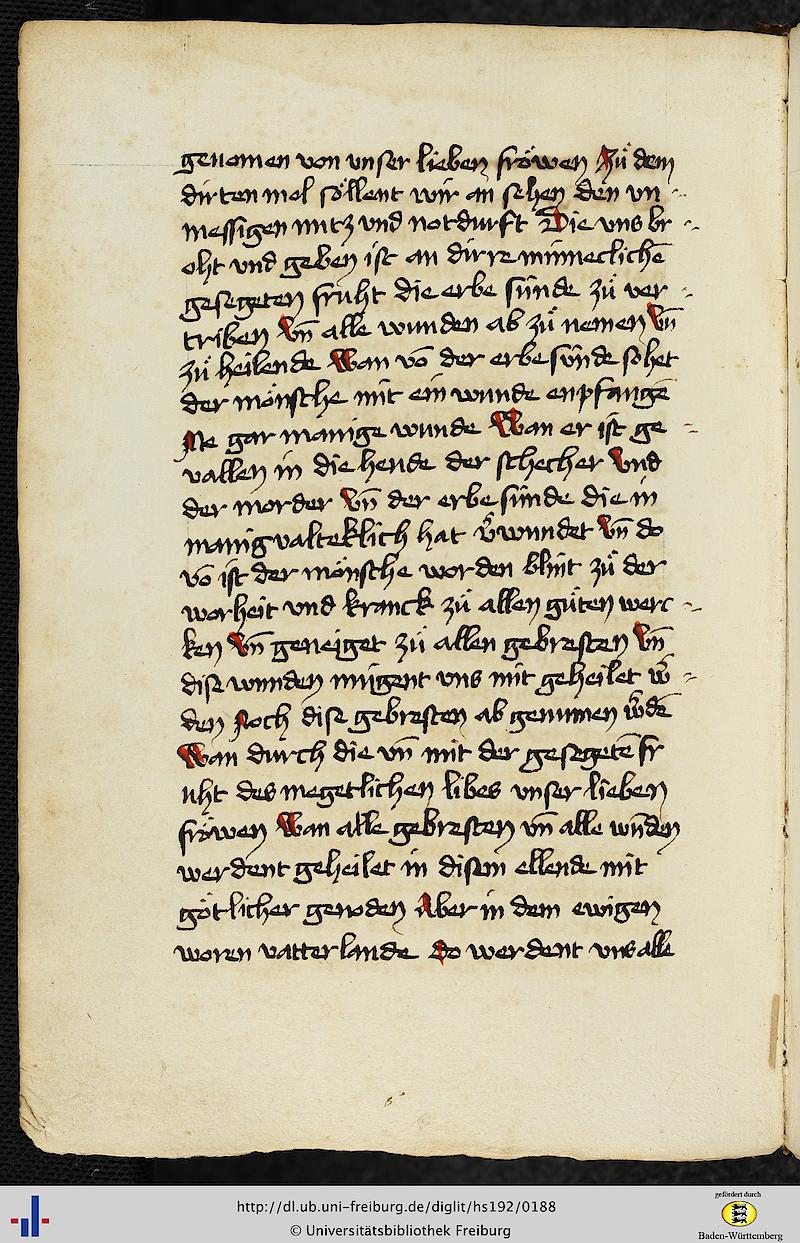 genomen von unser lieben fröwen Zů dem
dirten mol söllent wir an sehen den vn
messigen nutz vnd notdurft Die vns br
oht vnd geben ist an dirre minneclichē
gesegeten fruht die erbe sünde zů ver
triben Vn̄ alle wunden ab zů nemen Vn̄
zů heilende Wan vō der erbe sünde so het
der mönsche mit ein wunde enpfangē
Me gar manige wunde Wan er ist ge
vallen in die hende der schecher Vnd
der morder Vn̄ der erbe sünde die in
manigvalteklich hat v̄wundet Vn̄ do
vō ist der mönsche worden blint zů der
worheit vnd kranck zů allen gůten werc
ken Vn̄ geneiget zů allen gebresten Vn̄
dise wunden mügent vns mit geheilet w̄
den Noch dise gebresten ab genummen w̄dē
Wan durch die vn̄ mit der gesegetē fr
uht des megetlichen libes vnser lieben
fröwen Wan alle gebresten vn̄ alle wn̄den
werdent geheilet in disem ellende mit
götlicher genoden Aber in dem ewigen
woren vatter lande Do werdent vns alle
http://dl.ub.uni-freiburg.de/diglit/hs192/0188
© Universitätsbibliothek Freiburg
gefördert durch
Baden-Württemberg